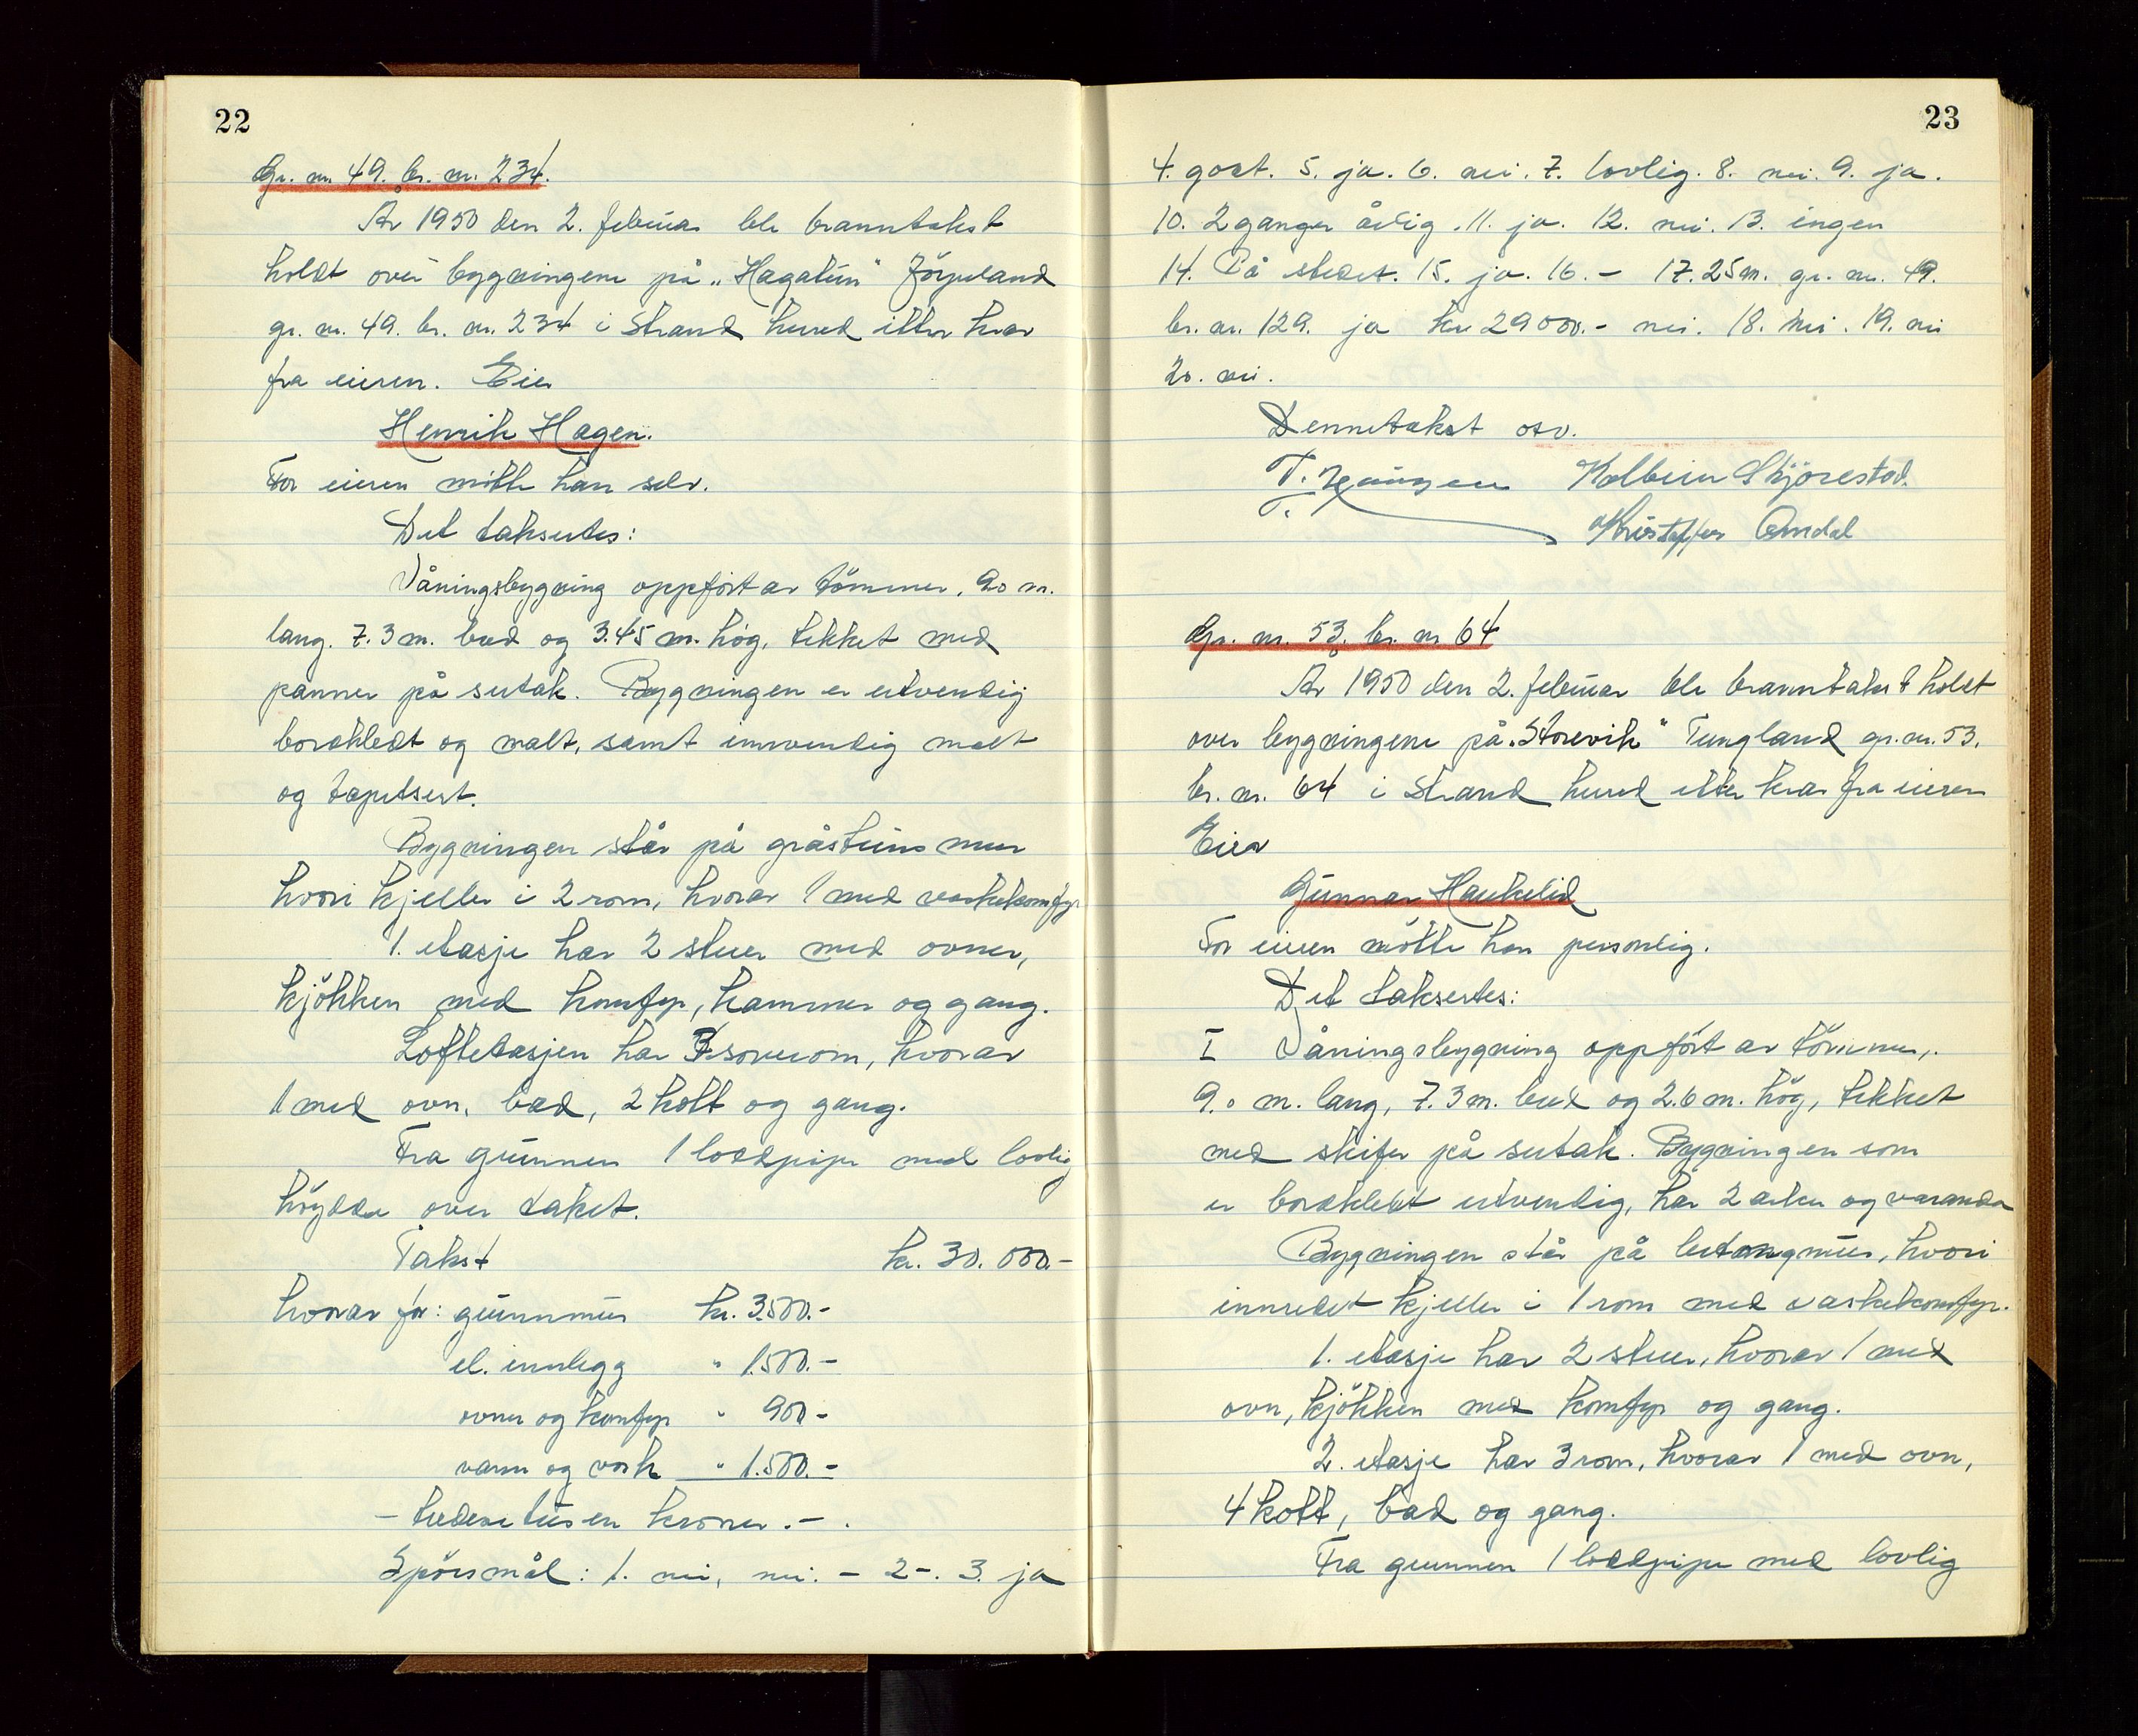 22
Gr. nr. 49. br. nr. 234.
År 1950 den 2. februar ble branntakst
holdt over bygningene på „Hagatun" Jörpeland
gr. nr. 49. br. nr. 234 i Strand herred etter krav
fra eieren. Eier
Henrik Hagen.
For eieren mötte han selv.
Det taksertes:
Våningsbygning oppfört av tömmer, 9.0 m.
lang. 7.3 m. bred og 3.45 m. hög, tekket med
panner på sutak. Bygningen er utvendig
bordkledt og malt, samt innvendig malt
og tapetsert.
Bygningen står på gråsteins mur
hvori kjeller i 2 rom, hvorav 1 med vaskekomfyr
1. etasje har 2 stuer med ovner,
kjökken med komfyr, kammer og gang.
Loftetasjen har 3 soverom, hvorav
1 med ovn, bad, 2 kott og gang.
Fra grunnen 1 loddpipe med lovlig
höyde over taket.
Takst kr. 30.000.-
hvorav for: grunnmur kr. 3.500.-
el. innlegg " 1.500.-
ovner og komfyr " 900-
vann og vask " 1.500.-
- tredvetusen kroner.-.
Spörsmål: 1. nei, nei. - 2-. 3. ja
23
4. godt. 5. ja. 6. nei. 7. lovlig. 8. nei. 9. ja.
10. 2 ganger årlig. 11. ja. 12. nei. 13. ingen
14. På stedet. 15. ja. 16. - 17. 25 m. gr. nr. 49.
br. nr. 129. ja kr 29000.- nei. 18. nei. 19. nei
20. nei.
Dennetakst osv.
T. Kolbein Skjörestad.
T. Kristoffer Amdal
Gr. nr. 53. br. nr 64
År 1950 den 2. februar ble branntakst holdt
over bygningene på „Storevik" Tungland gr. nr. 53.
br. nr. 64 i Strand herred etter krav fra eieren
Eier
Gunnar Haukelid
For eieren mötte han personlig.
Det taksertes:
I Våningsbygning oppfört av tömmer,.
9.0 m. lang, 7.3 m. bred og 2.6 m. hög, tekket
med skifer på sutak. Bygningen som
er bordkledt utvendig, har 2 arker og varanda
Bygningen står på betongmur, hvori
innredet kjeller i 1 rom med vaskekomfyr.
1. etasje har 2 stuer, hvorav 1 med
ovn, kjökken med komfyr og gang.
2. etasje har 3 rom, hvorav 1 med ovn,
4 kott, bad og gang.
Fra grunnen 1 loddpipe med lovlig